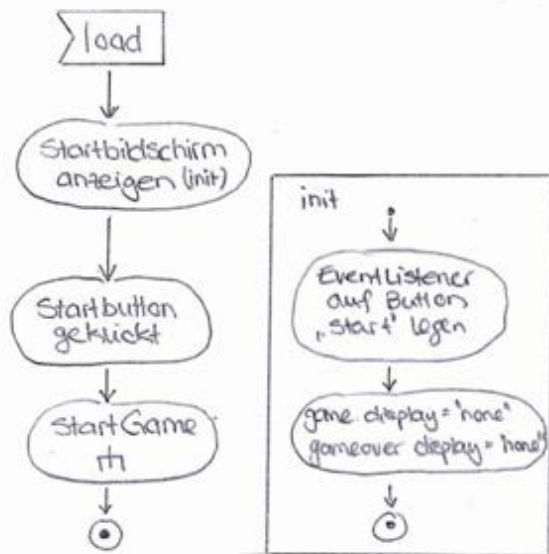 load
Startbildschirm
anzeigen (init)
Startbutton
geklickt
StartGame
init
EventListener
auf Button
„Start" legen
game.display = "none"
gameover display = "none"